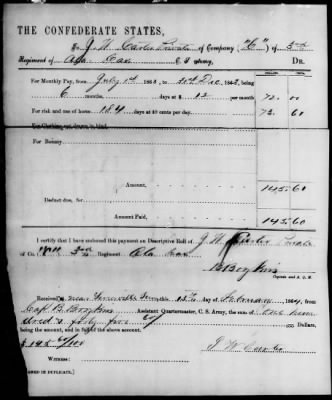 THE CONFEDERATE STATES,
To J. W. Carter Private of Company "C" of 3rd
Regiment of Ala Cav C. S. Army, DR.
DOLLARS. CENTS.
For Monthly Pay, from July 1st 1863, to 31st Dec. 1863, being
6 months, days at $ 12 per month 72. 00
For risk and use of horse 184 days at 40 cents per day. 73. 60
For Clothing not drawn in kind,
For Bounty
Amount, 145.60
Deduct due, for
Amount Paid, 145.60
I certify that I have endorsed this payment on Descriptive Roll of J. W. Carter Private
of Co. 3rd Regiment Ala Cav
B Boykin
Captain and A. Q. M.
Received, at near 15th day of February 1864, from
Capt B Boykin Assistant Quartermaster, C. S. Army, the sum of One hun
dred & forty five 60/ Dollars,
being the amount, and in full of the above account.
$ 145 60/100 J. W. Carter
Witness:
[SIGNED IN DUPLICATE.]